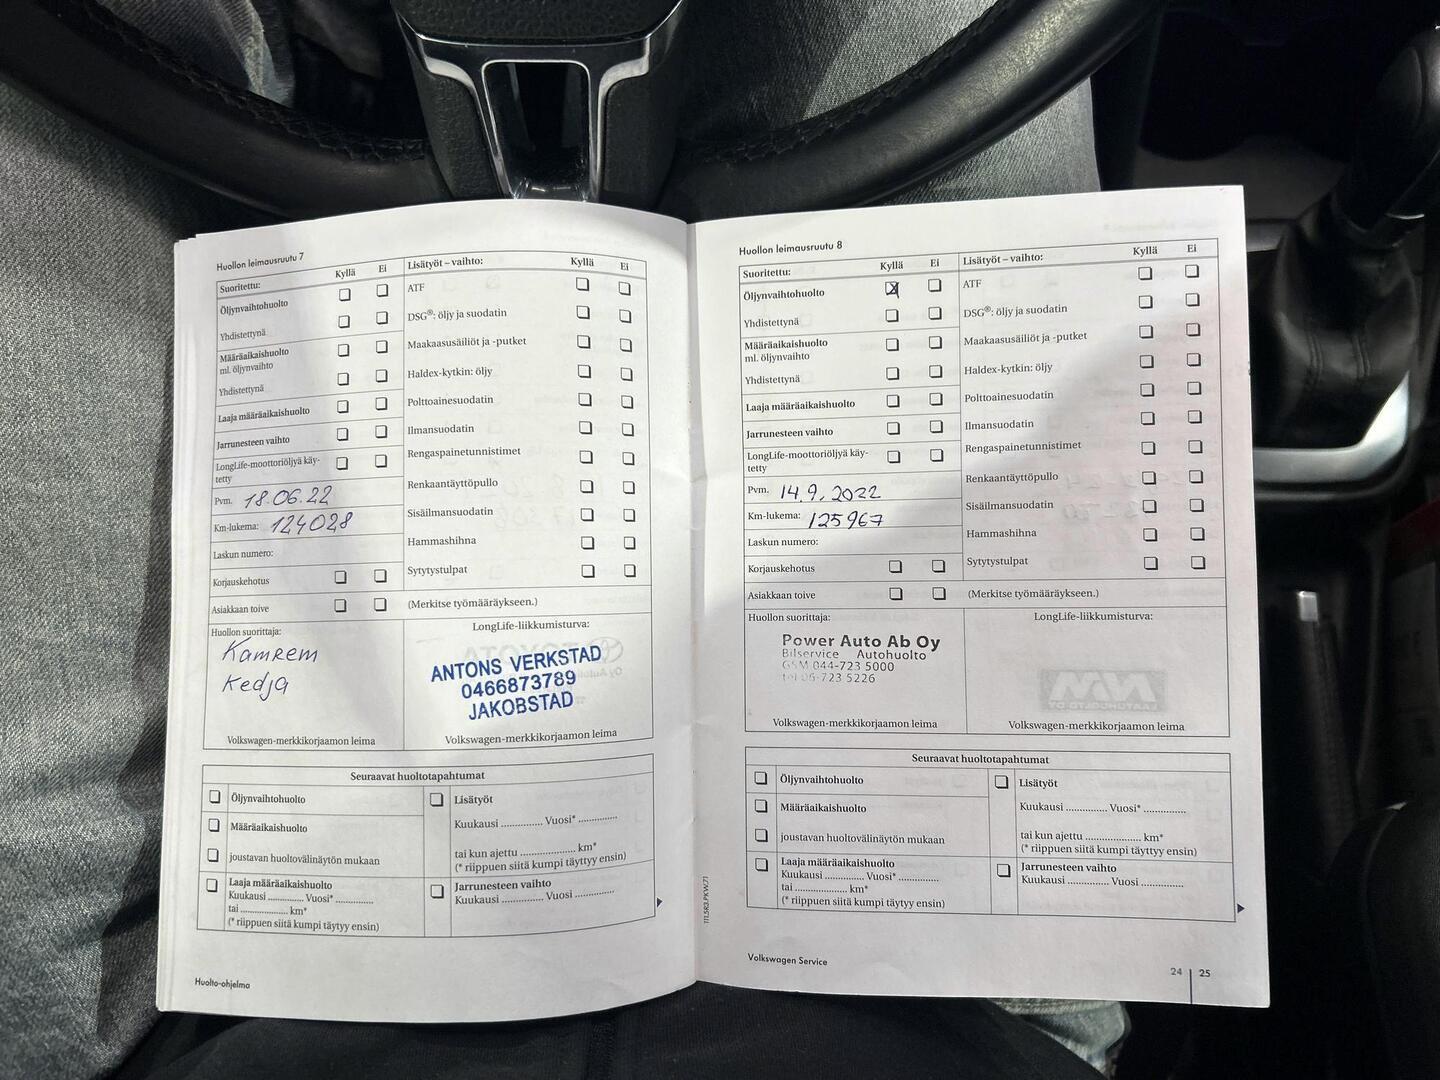 Huollon leimausruutu 7
Suoritettu: Kyllä Ei
Öljynvaihtohuolto
Yhdistettynä
Määräaikaishuolto
ml. öljynvaihto
Yhdistettynä
Laaja määräaikaishuolto
Jarrunesteen vaihto
LongLife-moottoriöljyä käy-
tetty
Pvm. 18.06.22
Km-lukema: 124028
Laskun numero:
Korjauskehotus
Asiakkaan toive
Lisätyöt – vaihto: Kyllä Ei
ATF
DSG®: öljy ja suodatin
Maakaasusäiliöt ja -putket
Haldex-kytkin: öljy
Polttoainesuodatin
Ilmansuodatin
Rengaspainetunnistimet
Renkaantäyttöpullo
Sisäilmansuodatin
Hammashihna
Sytytystulpat
(Merkitse työmääräykseen.)
Huollon suorittaja:
Kamrem
Kedja
Volkswagen-merkkikorjaamon leima
LongLife-liikkumisturva:
ANTONS VERKSTAD
0466873789
JAKOBSTAD
Volkswagen-merkkikorjaamon leima
Seuraavat huoltotapahtumat
Öljynvaihtohuolto
Määräaikaishuolto
joustavan huoltovälinäytön mukaan
Laaja määräaikaishuolto
Kuukausi .............. Vuosi* ..............
tai .................... km*
(* riippuen siitä kumpi täytyy ensin)
Lisätyöt
Kuukausi .............. Vuosi* ..............
tai kun ajettu .................... km*
(* riippuen siitä kumpi täyttyy ensin)
Jarrunesteen vaihto
Kuukausi .............. Vuosi ..............
Huolto-ohjelma
Huollon leimausruutu 8
Suoritettu: Kyllä Ei
Öljynvaihtohuolto
Yhdistettynä
Määräaikaishuolto
ml. öljynvaihto
Yhdistettynä
Laaja määräaikaishuolto
Jarrunesteen vaihto
LongLife-moottoriöljyä käy-
tetty
Pvm. 14.9.2022
Km-lukema: 125967
Laskun numero:
Korjauskehotus
Asiakkaan toive
Lisätyöt – vaihto: Kyllä Ei
ATF
DSG®: öljy ja suodatin
Maakaasusäiliöt ja -putket
Haldex-kytkin: öljy
Polttoainesuodatin
Ilmansuodatin
Rengaspainetunnistimet
Renkaantäyttöpullo
Sisäilmansuodatin
Hammashihna
Sytytystulpat
(Merkitse työmääräykseen.)
Huollon suorittaja:
Power Auto Ab Oy
Bilservice Autohuolto
GSM 044-723 5000
tel 06-723 5226
Volkswagen-merkkikorjaamon leima
LongLife-liikkumisturva:
Volkswagen-merkkikorjaamon leima
Seuraavat huoltotapahtumat
Öljynvaihtohuolto
Määräaikaishuolto
joustavan huoltovälinäytön mukaan
Laaja määräaikaishuolto
Kuukausi .............. Vuosi* ..............
tai .................... km*
(* riippuen siitä kumpi täytyy ensin)
Lisätyöt
Kuukausi .............. Vuosi* ..............
tai kun ajettu .................... km*
(* riippuen siitä kumpi täyttyy ensin)
Jarrunesteen vaihto
Kuukausi .............. Vuosi ..............
111.5R3.PKW.71
Volkswagen Service
24 | 25